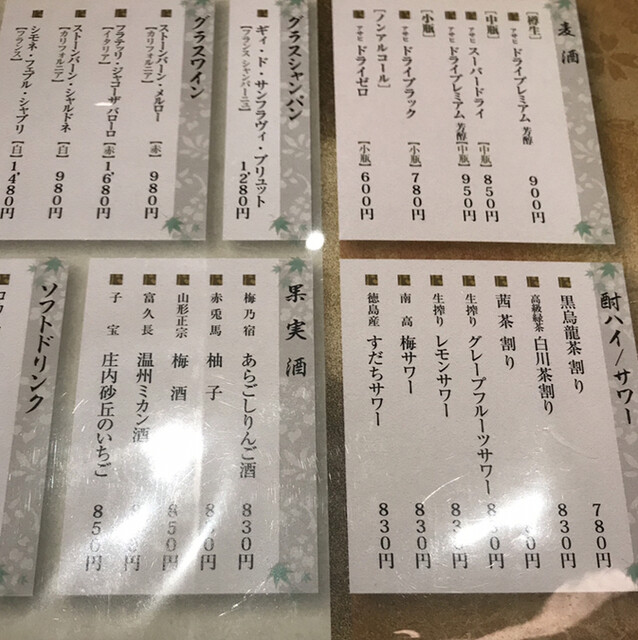 麦酒
【樽生】
アサヒ ドライプレミアム 芳醇 900円
【中瓶】
アサヒ スーパードライ 【中瓶】 850円
アサヒ ドライプレミアム 芳醇 【中瓶】 950円
【小瓶】
アサヒ ドライブラック 【小瓶】 780円
【ノンアルコール】
アサヒ ドライゼロ 【小瓶】 600円
グラスシャンパン
ギィ・ド・サンフラヴィ・ブリュット
【フランス シャンパーニュ】
1,280円
グラスワイン
ストーンバーン・メルロー
【カリフォルニア】
【赤】 980円
フラテッリ・ジャコーザ バローロ
【イタリア】
【赤】 1,680円
ストーンバーン・シャルドネ
【カリフォルニア】
【白】 980円
シモネ・フェブル・シャブリ
【フランス】
【白】 1,480円
酎ハイ/サワー
780円
黒烏龍茶割り 830円
高級緑茶 白川茶割り
茜茶割り 830円
生搾り グレープフルーツサワー
生搾り レモンサワー 830円
南高 梅サワー 830円
徳島産 すだちサワー 830円
果実酒
梅乃宿 あらごしりんご酒 830円
赤兎馬 柚子
山形正宗 梅酒 850円
富久長 温州ミカン酒
子宝 庄内砂丘のいちご 850円
ソフトドリンク